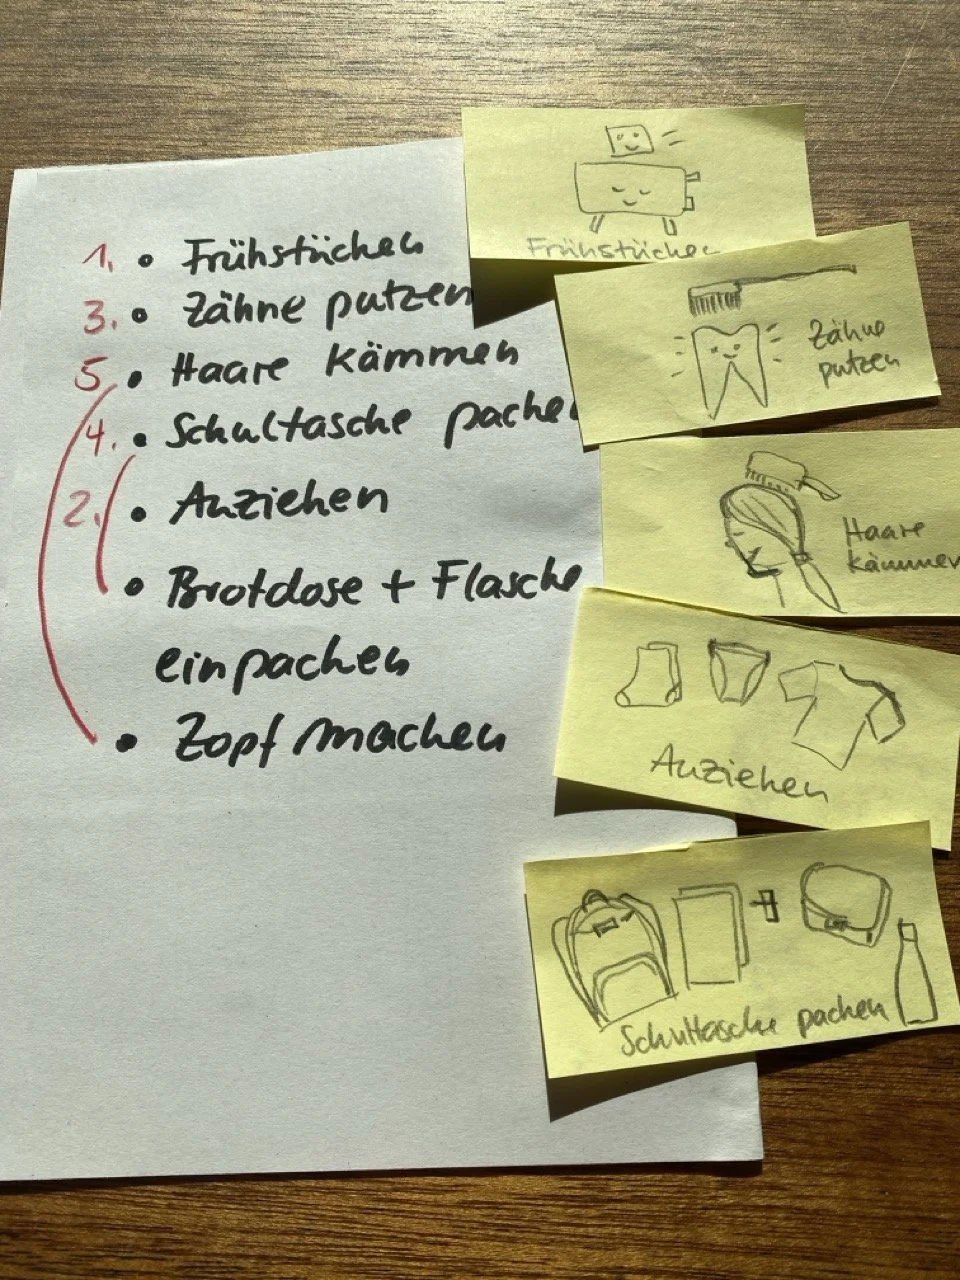 1. • Frühstücken
3. • Zähne putzen
5. • Haare kämmen
4. • Schultasche packen
2. • Anziehen
• Brotdose + Flasche
einpacken
• Zopf machen
Frühstücken
Zähne
putzen
Haare
kämmen
Anziehen
Schultasche packen